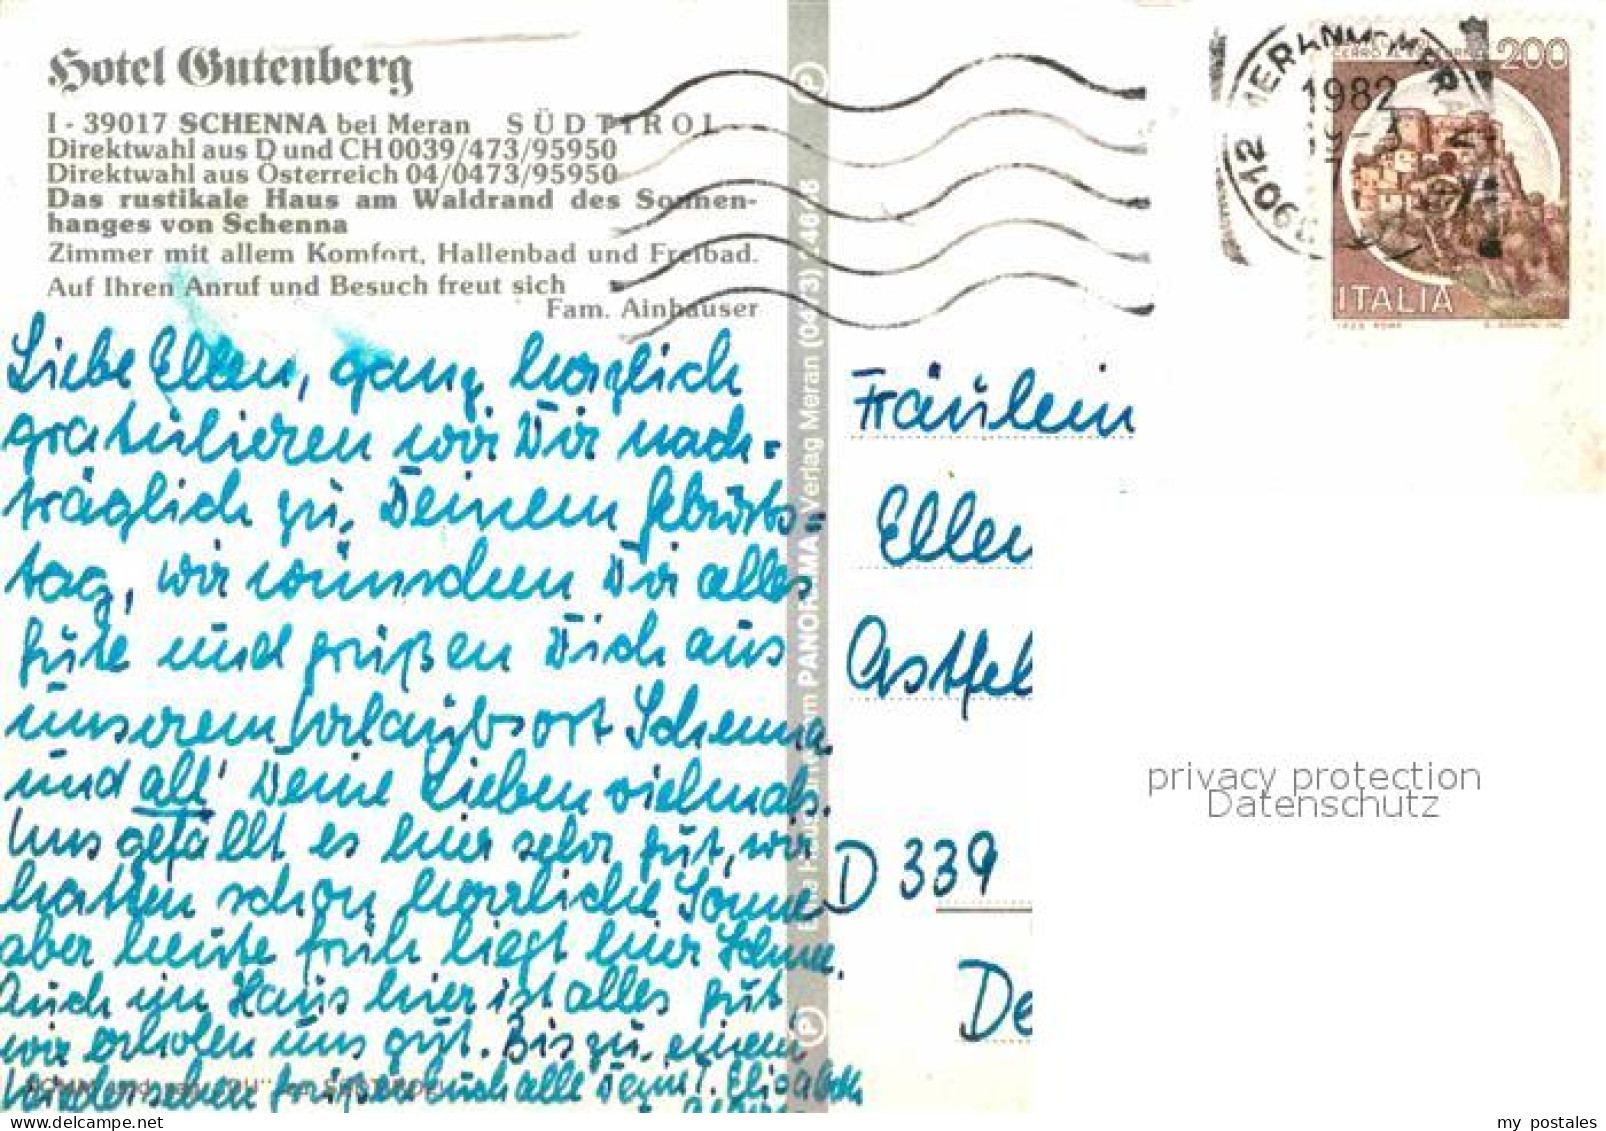 Hotel Gutenberg
I - 39017 SCHENNA bei Meran SÜDTIROL
Direktwahl aus D und CH 0039/473/95950
Direktwahl aus Österreich 04/0473/95950
Das rustikale Haus am Waldrand des Sonnen-
hanges von Schenna
Zimmer mit allem Komfort, Hallenbad und Freibad.
Auf Ihren Anruf und Besuch freut sich
Fam. Ainhauser
Liebe Ellen, ganz herzlich
gratulieren wir Dir nach-
träglich zu Deinem Geburts-
tag, wir wünschen Dir alles
Gute und grüßen Dich aus
unserem Urlaubsort Schenna
und all' Deine Lieben vielmals.
Uns gefällt es hier sehr gut, wir
hatten schon herrliche Sonne
aber heute früh liegt hier Schnee.
Auch im Haus hier ist alles gut
wir erholen uns gut. Bis zu einem
Wiedersehen grüßen Euch alle Deine T. Elisabeth
PANORAMA Verlag Meran (0473)
P
P
39012 MERANO-MERAN
1982
200
ITALIA
Fräulein
Ellen
Astfel
D 339
De
privacy protection
Datenschutz
my postales